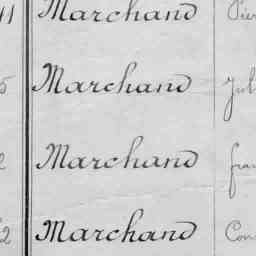 11 Marchand Pier
5 Marchand Jul
2 Marchand fran
2 Marchand Con